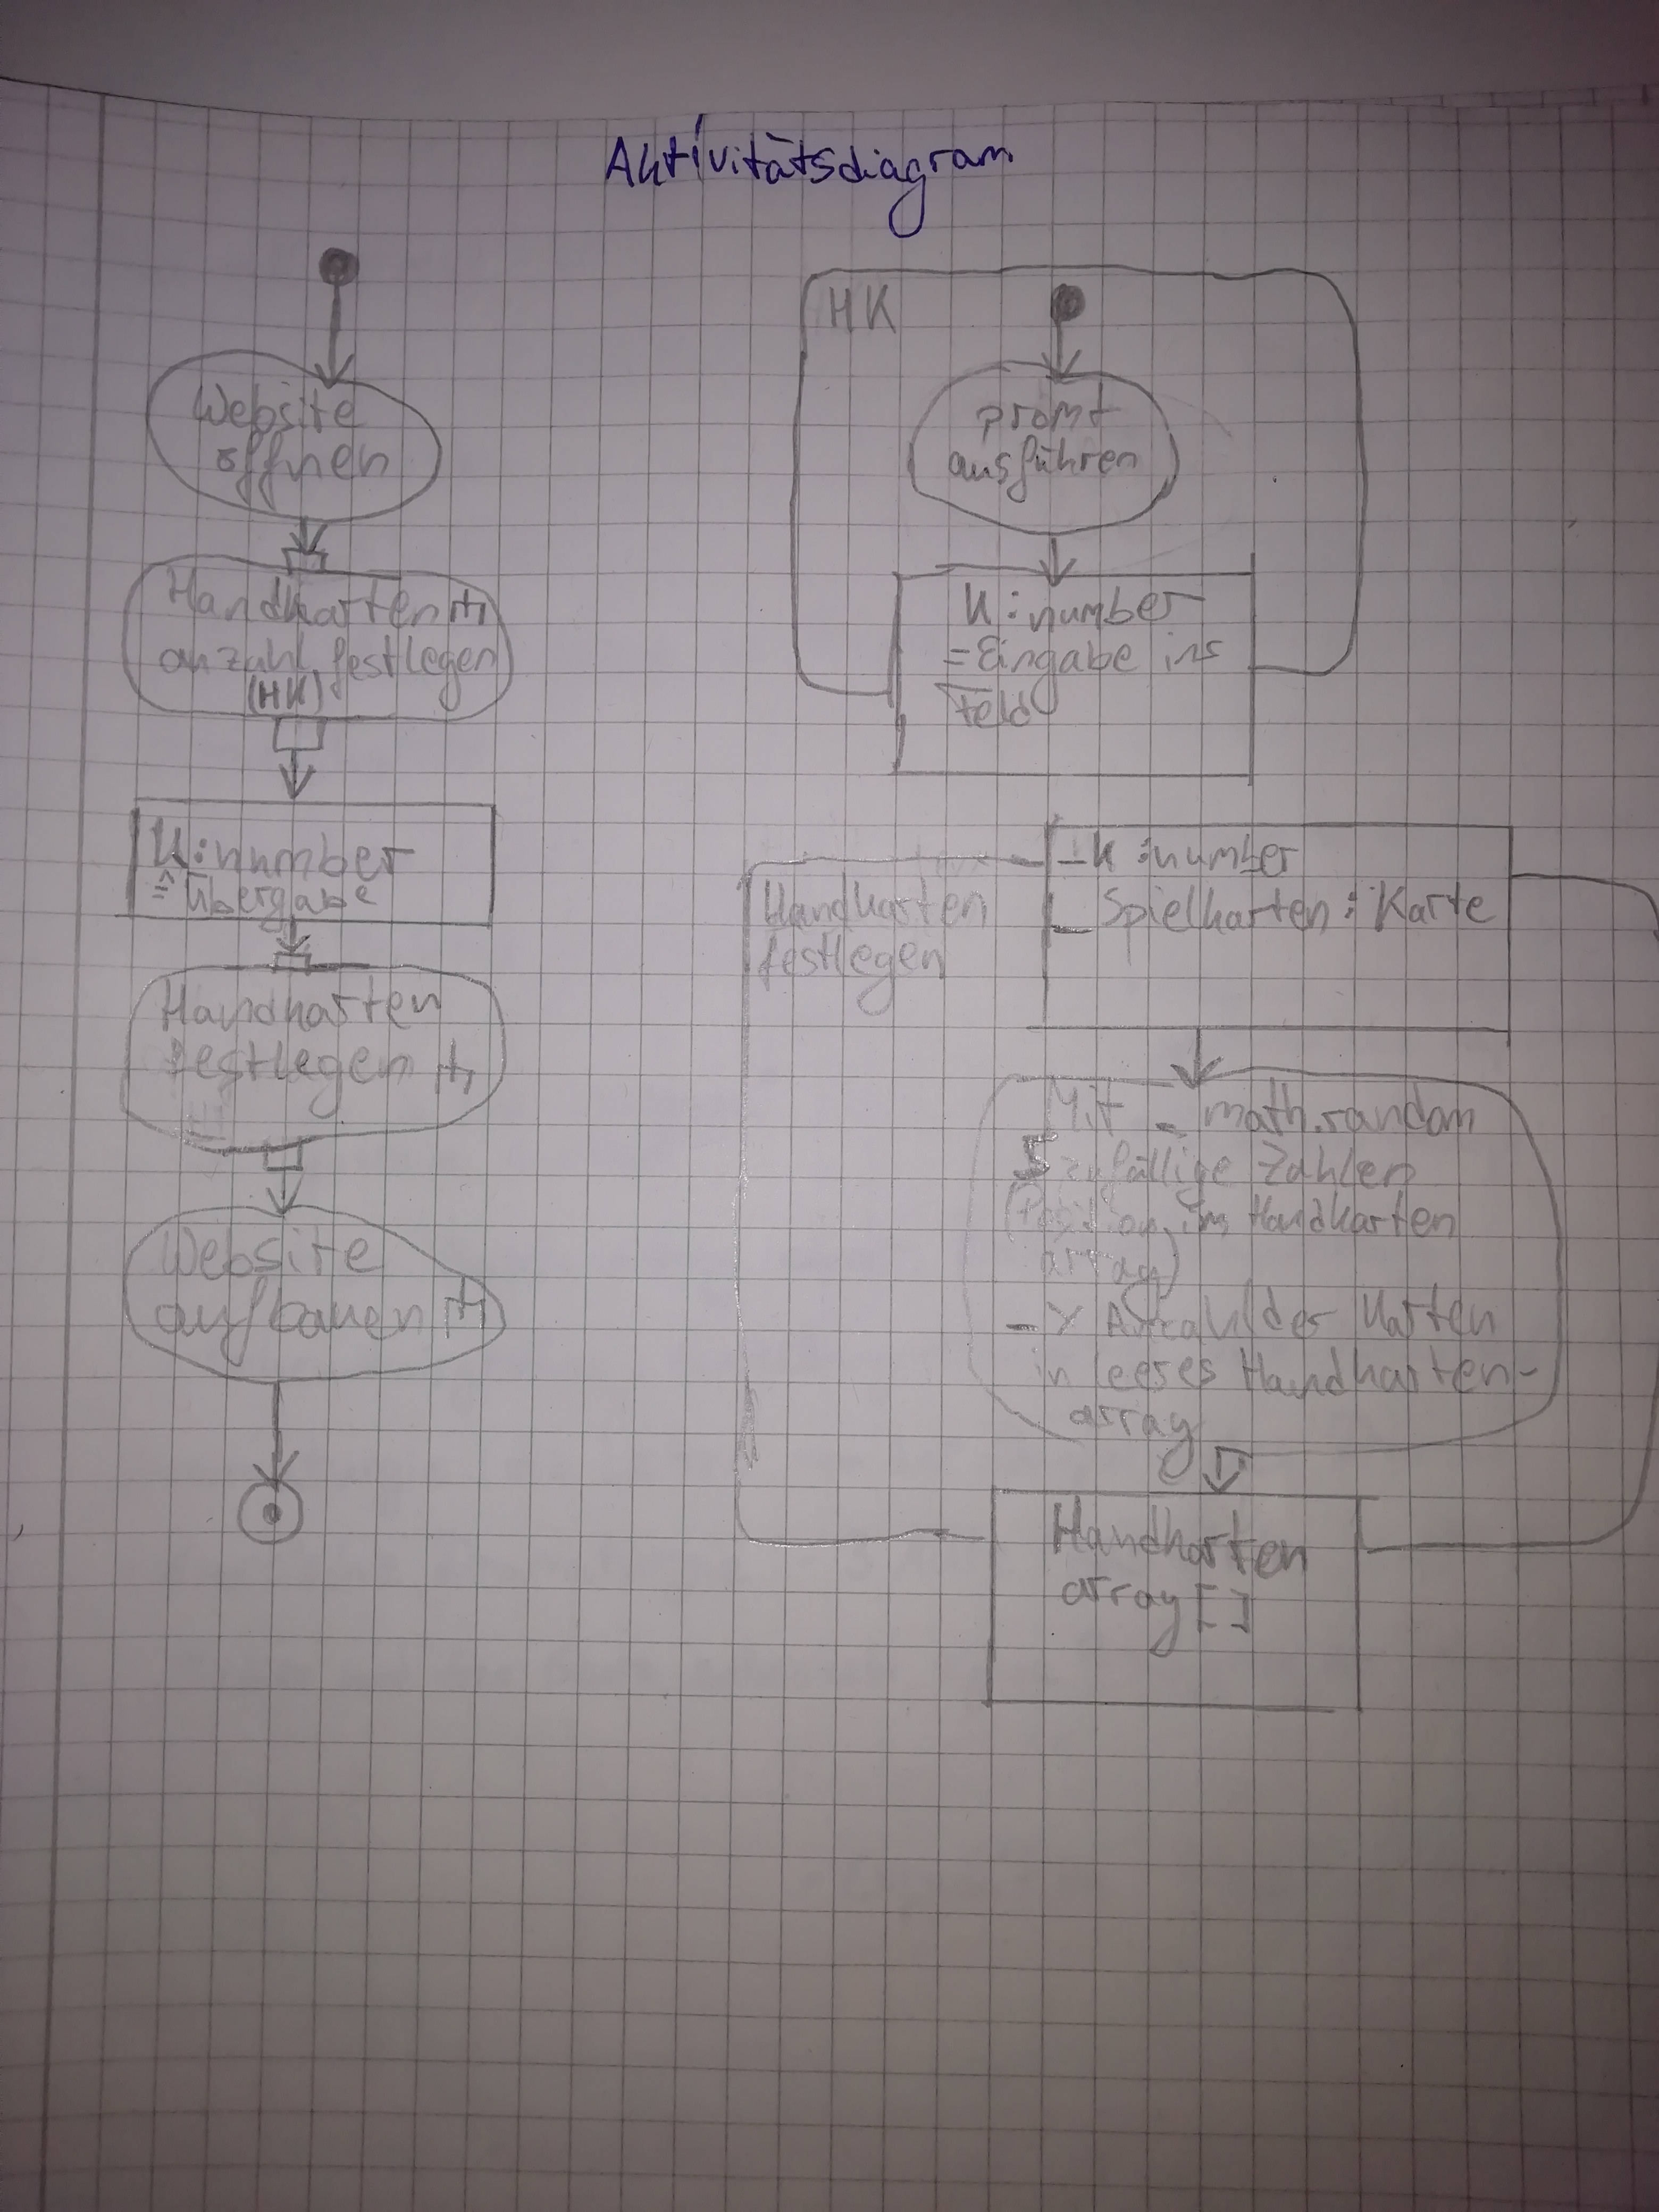 Aktivitätsdiagram
Website
öffnen
Handkarten
anzahl festlegen
(HK)
K:number
≙ Übergabe
Handkarten
festlegen
Website
aufbauen
HK
promt
ausführen
K:number
=Eingabe ins
Feld
Handkarten
festlegen
-K :number
- Spielkarten : Karte
Mit - math.random
5 zufällige Zahlen
(Position im Handkarten
array)
-> Anzahl der Karten
in leeres Handkarten-
array
Handkarten
array[]